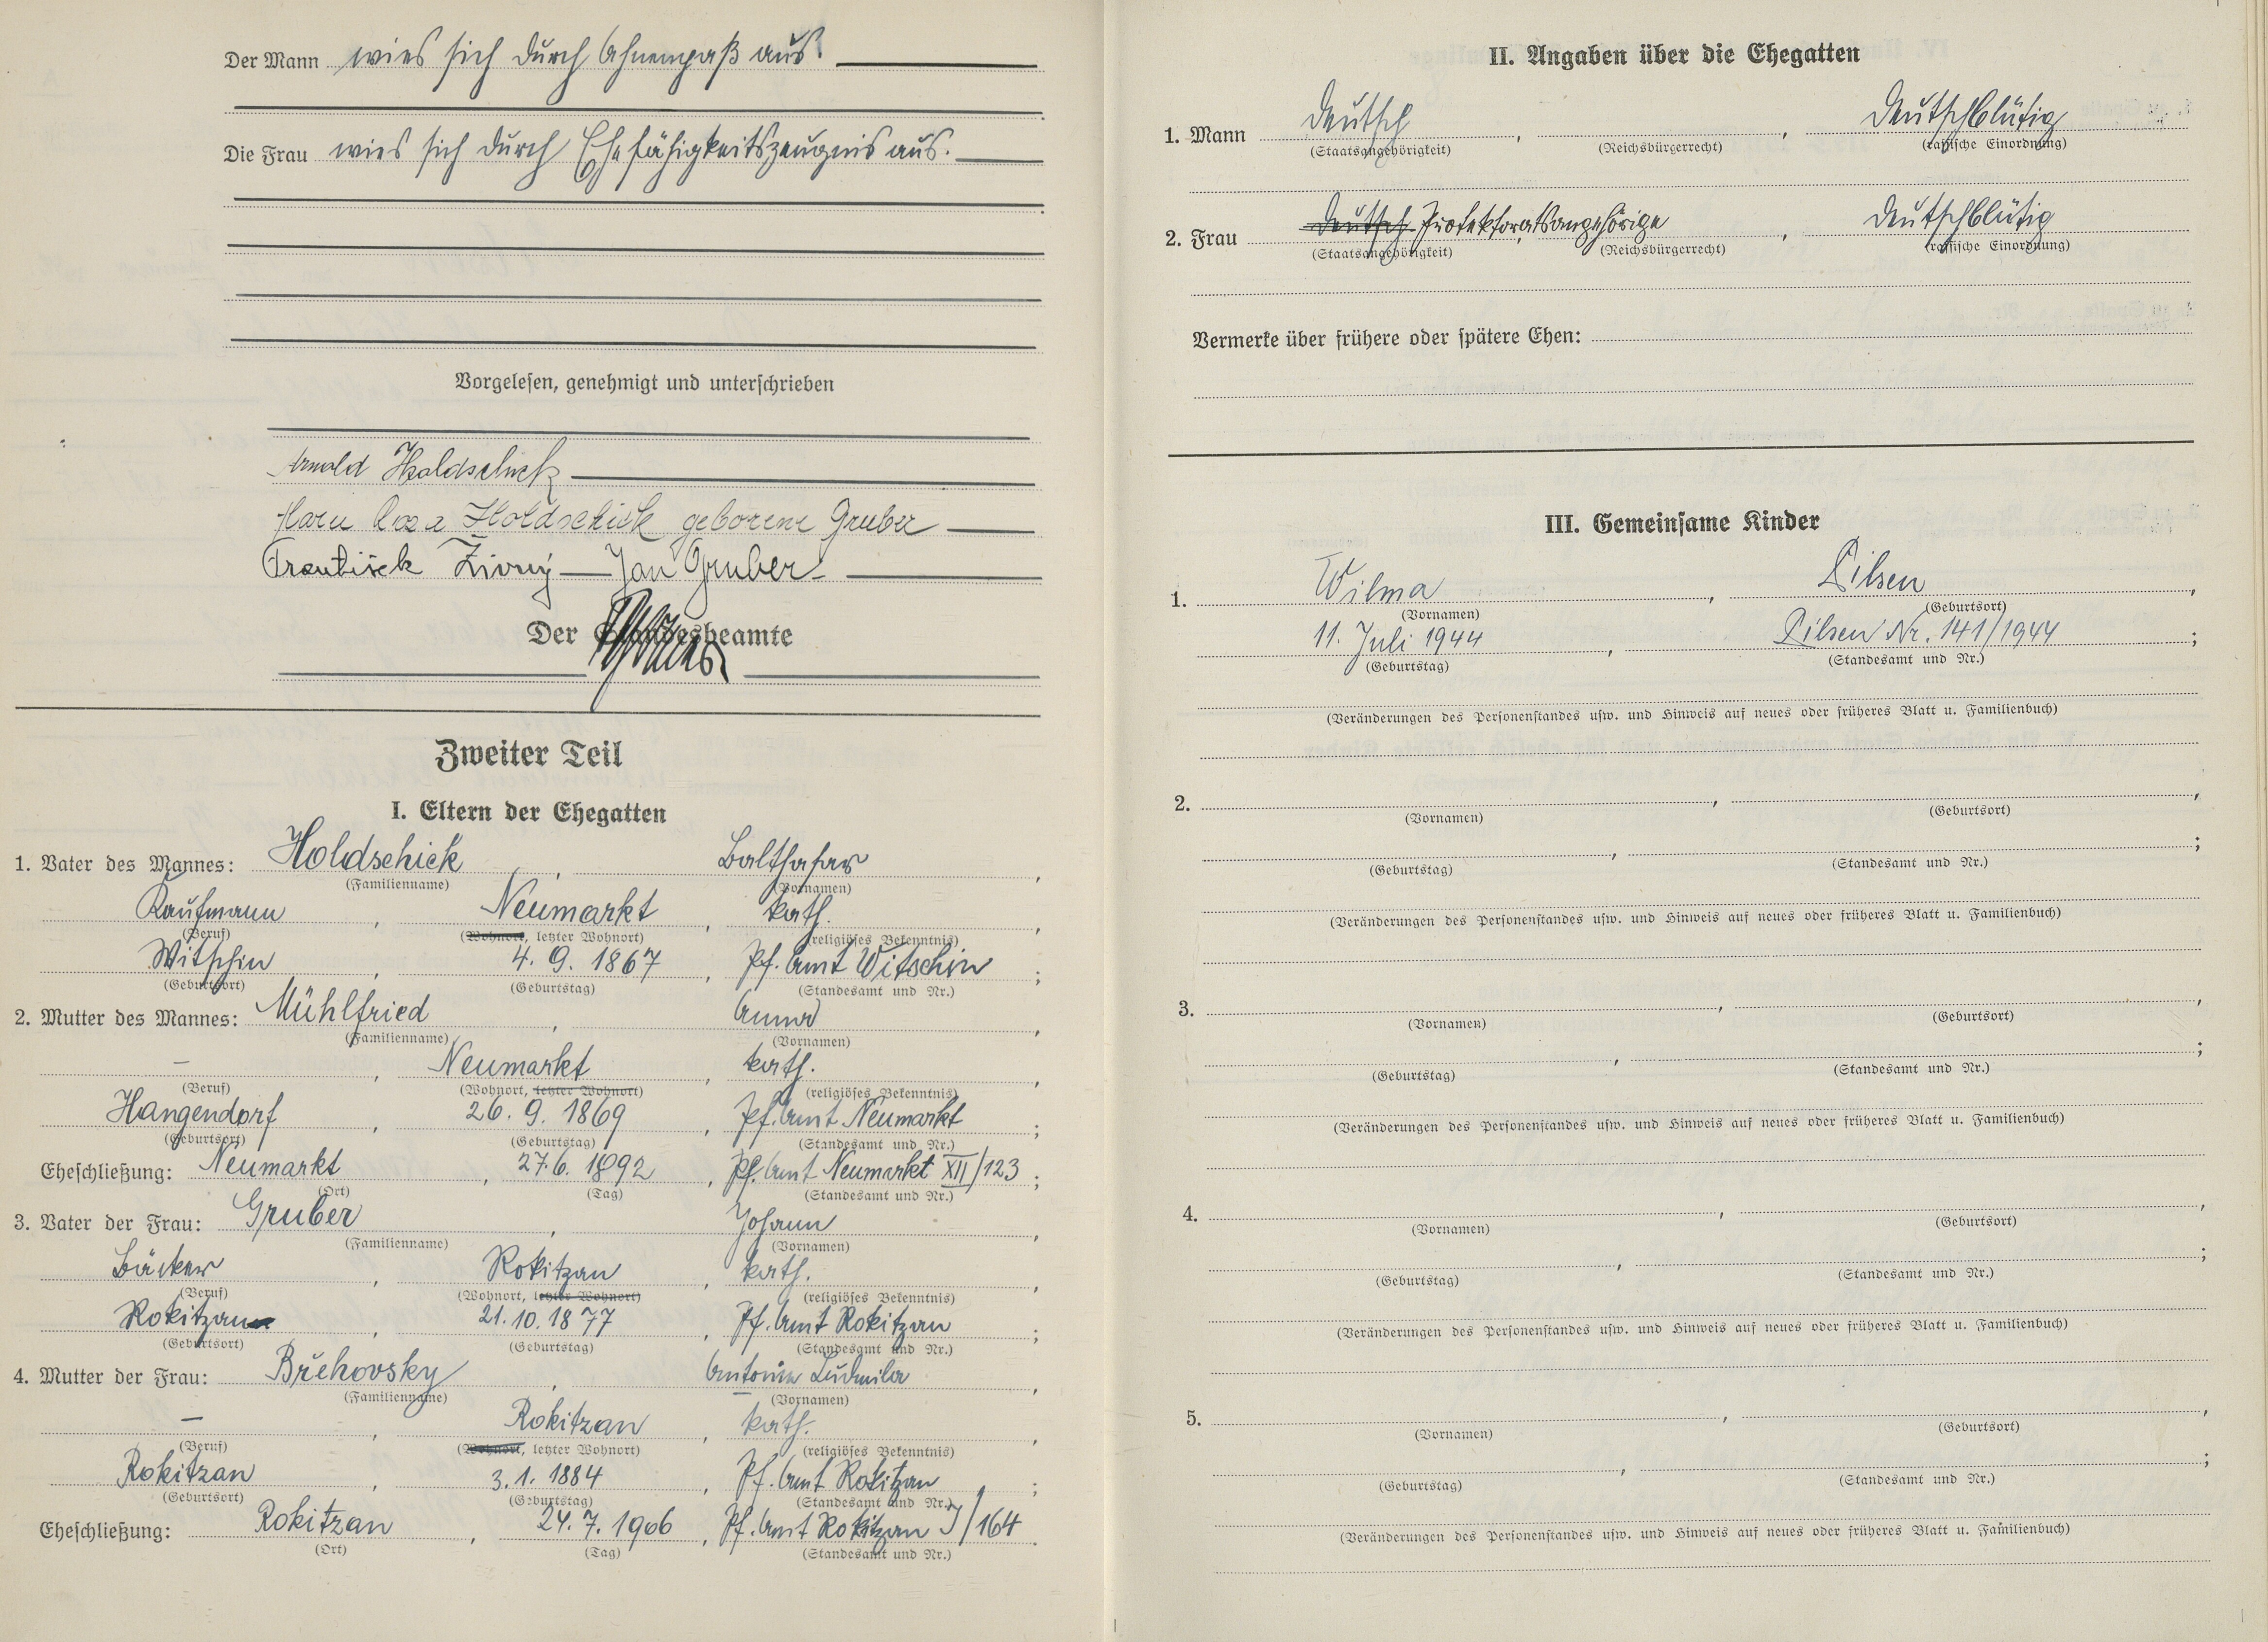 Der Mann wies sich durch Ahnenpaß aus.
Die Frau wies sich durch Ehefähigkeitszeugnis aus.
Vorgelesen, genehmigt und unterschrieben
Arnold Holdschick
Holdschick geborene Gruber
František Živný — Jan Gruber
Der Standesbeamte
Zweiter Teil
I. Eltern der Ehegatten
1. Vater des Mannes: Holdschick, Balthasar,
(Familienname) (Vornamen)
Kaufmann, Neumarkt, kath.,
(Beruf) (Wohnort, letzter Wohnort) (religiöses Bekenntnis)
Witschin, 4. 9. 1867, Pf. Amt Witschin;
(Geburtsort) (Geburtstag) (Standesamt und Nr.)
2. Mutter des Mannes: Mühlfried, Anna,
(Familienname) (Vornamen)
–, Neumarkt, kath.,
(Beruf) (Wohnort, letzter Wohnort) (religiöses Bekenntnis)
Hangendorf, 26. 9. 1869, Pf. Amt Neumarkt;
(Geburtsort) (Geburtstag) (Standesamt und Nr.)
Eheschließung: Neumarkt, 27.6. 1892, Pf. Amt Neumarkt XII/123;
(Ort) (Tag) (Standesamt und Nr.)
3. Vater der Frau: Gruber, Johann,
(Familienname) (Vornamen)
Bäcker, Rokitzan, kath.,
(Beruf) (Wohnort, letzter Wohnort) (religiöses Bekenntnis)
Rokitzan, 21. 10. 1877, Pf. Amt Rokitzan;
(Geburtsort) (Geburtstag) (Standesamt und Nr.)
4. Mutter der Frau: Břehovsky, Antonie Ludmila,
(Familienname) (Vornamen)
–, Rokitzan, kath.,
(Beruf) (Wohnort, letzter Wohnort) (religiöses Bekenntnis)
Rokitzan, 3. 1. 1884, Pf. Amt Rokitzan;
(Geburtsort) (Geburtstag) (Standesamt und Nr.)
Eheschließung: Rokitzan, 24. 7. 1906, Pf. Amt Rokitzan I/164.
(Ort) (Tag) (Standesamt und Nr.)
II. Angaben über die Ehegatten
1. Mann Deutsch, , Deutschblütig
(Staatsangehörigkeit) (Reichsbürgerrecht) (rassische Einordnung)
2. Frau Deutsch Protektoratsangehörige, Deutschblütig
(Staatsangehörigkeit) (Reichsbürgerrecht) (rassische Einordnung)
Vermerke über frühere oder spätere Ehen:
III. Gemeinsame Kinder
1. Wilma, Pilsen,
(Vornamen) (Geburtsort)
11. Juli 1944, Pilsen Nr. 141/1944;
(Geburtstag) (Standesamt und Nr.)
(Veränderungen des Personenstandes usw. und Hinweis auf neues oder früheres Blatt u. Familienbuch)
2. , ,
(Vornamen) (Geburtsort)
, ;
(Geburtstag) (Standesamt und Nr.)
(Veränderungen des Personenstandes usw. und Hinweis auf neues oder früheres Blatt u. Familienbuch)
3. , ,
(Vornamen) (Geburtsort)
, ;
(Geburtstag) (Standesamt und Nr.)
(Veränderungen des Personenstandes usw. und Hinweis auf neues oder früheres Blatt u. Familienbuch)
4. , ,
(Vornamen) (Geburtsort)
, ;
(Geburtstag) (Standesamt und Nr.)
(Veränderungen des Personenstandes usw. und Hinweis auf neues oder früheres Blatt u. Familienbuch)
5. , ,
(Vornamen) (Geburtsort)
, ;
(Geburtstag) (Standesamt und Nr.)
(Veränderungen des Personenstandes usw. und Hinweis auf neues oder früheres Blatt u. Familienbuch)